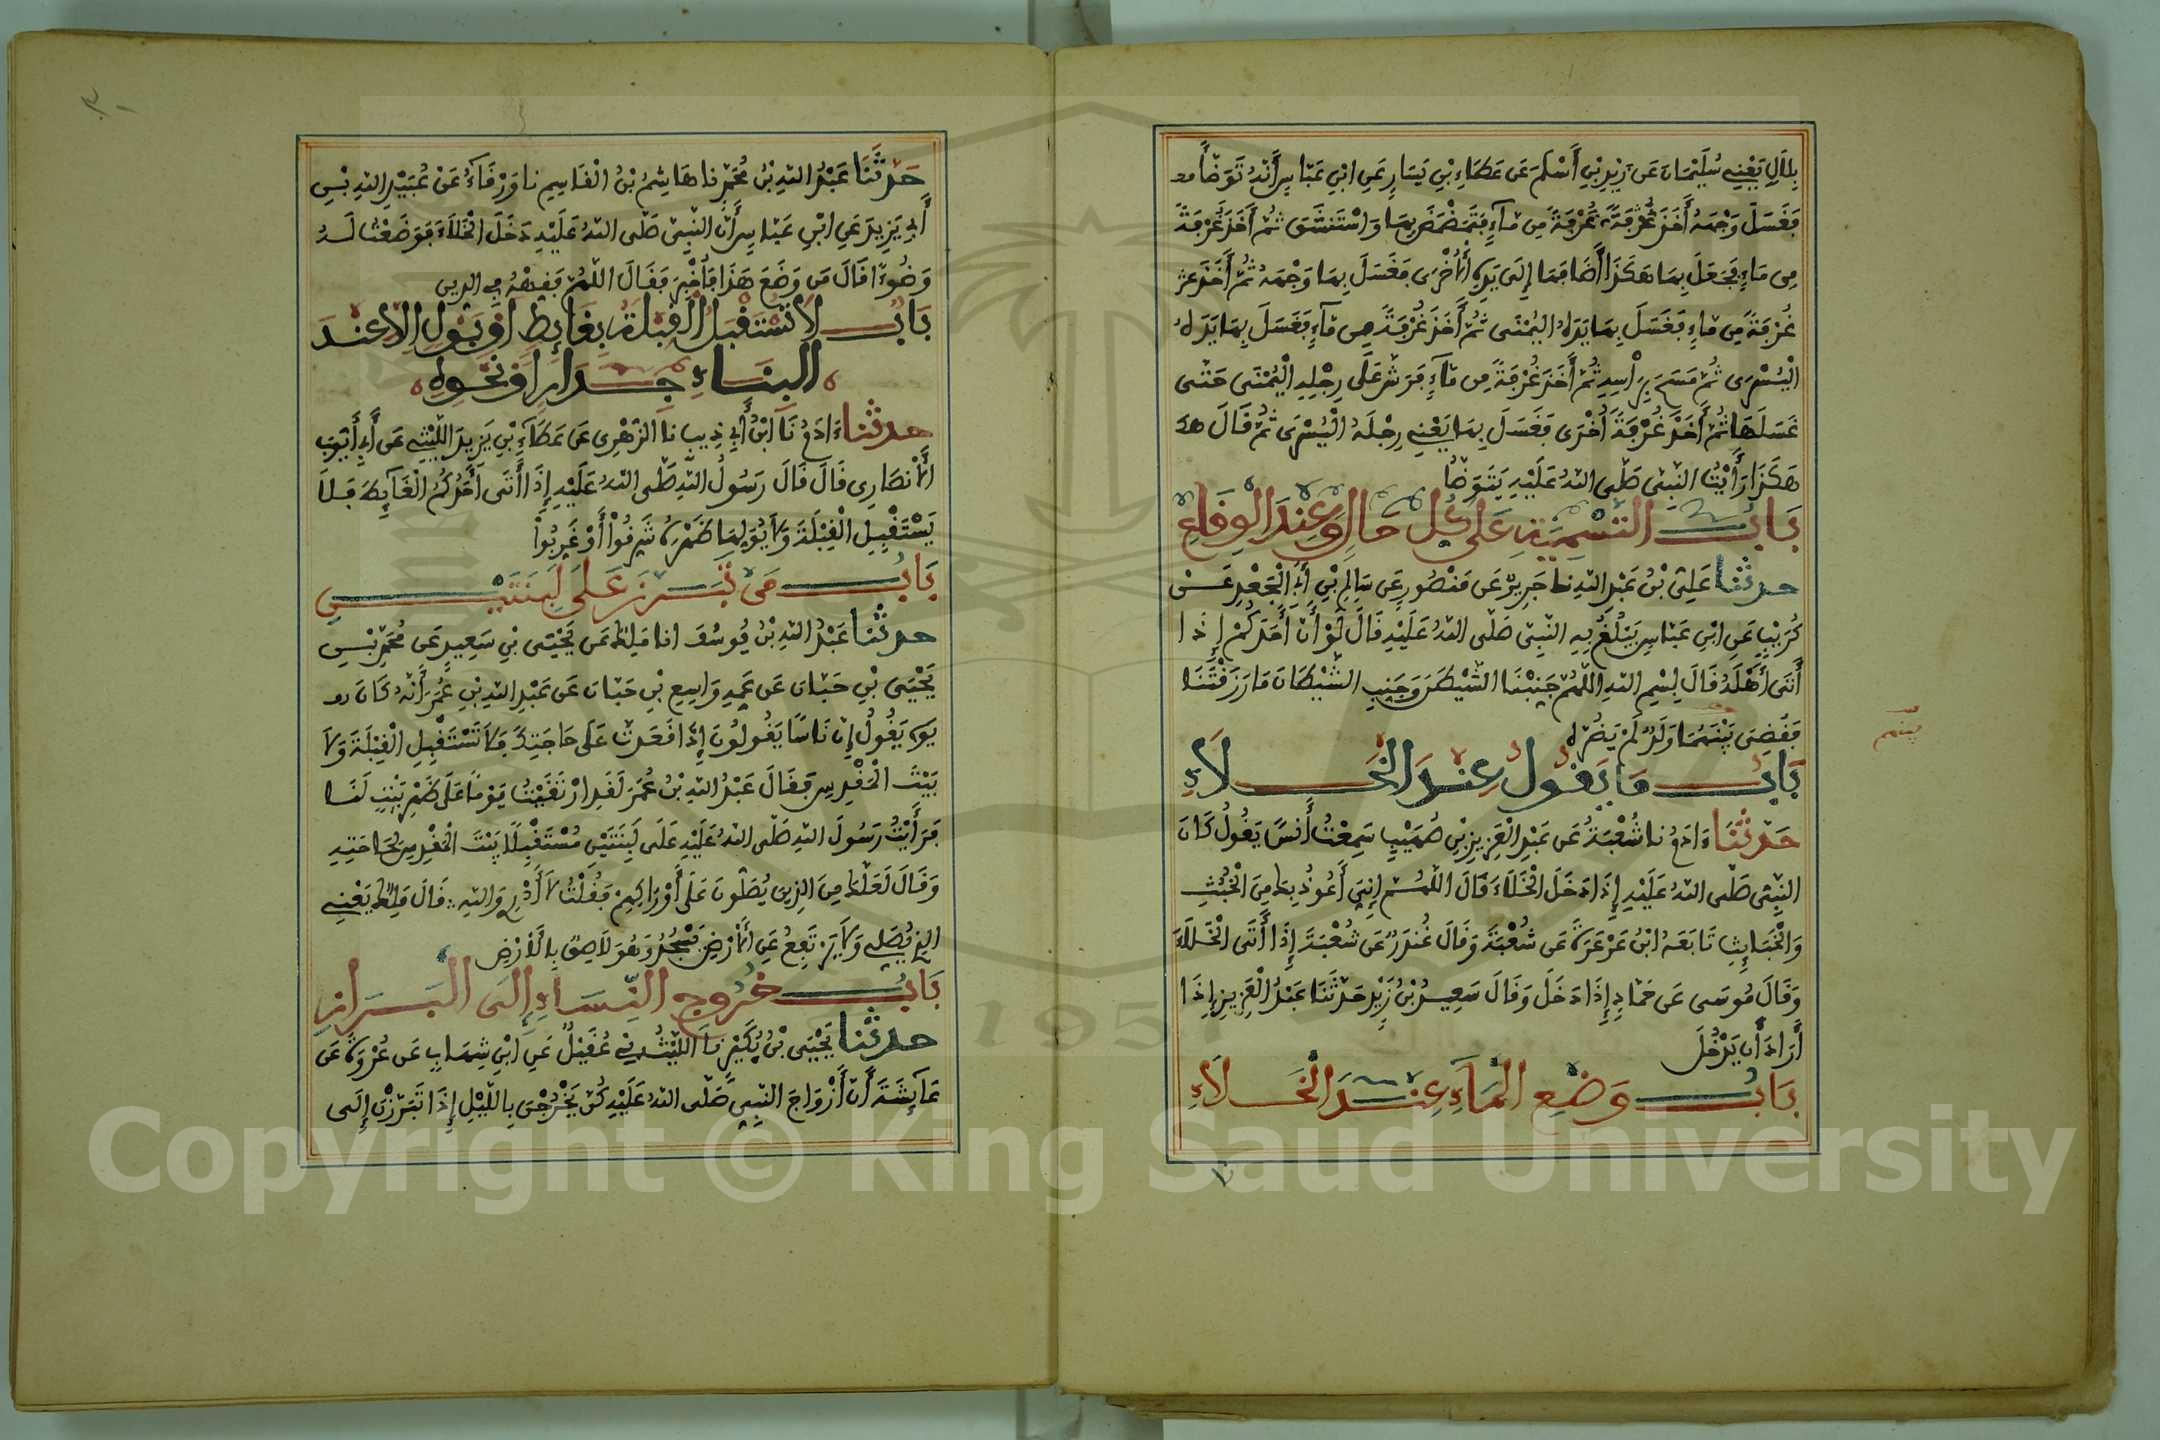 بِلَالٍ يَعْنِي سُلَيْمَانَ عَن زَيْدِ بْنِ أَسْلَمَ عَن عَطَاءِ بْنِ يَسَارٍ عَنِ ابْنِ عَبَّاسٍ أَنَّهُ تَوَضَّأَ
فَغَسَلَ وَجْهَهُ أَخَذَ غُرْفَةً مِن مَآءٍ فَتَمَضْمَضَ بِهَا وَاسْتَنْشَقَ ثُمَّ أَخَذَ غُرْفَةً
مِن مَاءٍ فَجَعَلَ بِهَا هَكَذَا أَضَافَهَا إِلَى يَدِهِ الْأُخْرَى فَغَسَلَ بِهَا وَجْهَهُ ثُمَّ أَخَذَ
غُرْفَةً مِن مَاءٍ فَغَسَلَ بِهَا يَدَهُ الْيُمْنَى ثُمَّ أَخَذَ غُرْفَةً مِن مَآءٍ فَغَسَلَ بِهَا يَدَهُ
الْيُسْرَى ثُمَّ مَسَحَ بِرَأْسِهِ ثُمَّ أَخَذَ غُرْفَةً مِن مَآءٍ فَرَشَّ عَلَى رِجْلِهِ الْيُمْنَى حَتَّى
غَسَلَهَا ثُمَّ أَخَذَ غُرْفَةً أُخْرَى فَغَسَلَ بِهَا يَعْنِي رِجْلَهُ الْيُسْرَى ثُمَّ قَالَ
هَكَذَا رَأَيْتُ النَّبِيَّ صَلَّى اللَّهُ عَلَيْهِ يَتَوَضَّأُ
بَابُ التَّسْمِيَةِ عَلَى كُلِّ حَالٍ وَعِندَ الْوِقَاعِ
حدثنا عَلِيُّ بْنُ عَبْدِ اللَّهِ نا جَرِيرٌ عَن مَنْصُورٍ عَن سَالِمِ بْنِ أَبِي الْجَعْدِ عَن
كُرَيْبٍ عَنِ ابْنِ عَبَّاسٍ يَبْلُغُ بِهِ النَّبِيَّ صَلَّى اللَّهُ عَلَيْهِ قَالَ لَوْ أَنَّ أَحَدَكُمْ إِذَا
أَتَى أَهْلَهُ قَالَ بِسْمِ اللَّهِ اللَّهُمَّ جَنِّبْنَا الشَّيْطَنَ وَجَنِّبِ الشَّيْطَانَ مَا رَزَقْتَنَا
فَقُضِيَ بَيْنَهُمَا وَلَدٌ لَمْ يَضُرَّهُ
بينهم
بَابُ مَا يَقُولُ عِندَ الْخَلَاءِ
حَدَّثَنَا ءَادَمُ نا شُعْبَةُ عَن عَبْدِ الْعَزِيزِ بْنِ صُهَيْبٍ سَمِعْتُ أَنَسًا يَقُولُ كَانَ
النَّبِيُّ صَلَّى اللَّهُ عَلَيْهِ إِذَا دَخَلَ الْخَلَاءَ قَالَ اللَّهُمَّ إِنِّي أَعُوذُ بِكَ مِنَ الْخُبُثِ
وَالْخَبَائِثِ تَابَعَهُ ابْنُ عَرْعَرَةَ عَن شُعْبَةَ وَقَالَ غُندَرٌ عَن شُعْبَةَ إِذَا أَتَى الْخَلَاءَ
وَقَالَ مُوسَى عَن حَمَّادٍ إِذَا دَخَلَ وَقَالَ سَعِيدُ بْنُ زَيْدٍ حَدَّثَنَا عَبْدُ الْعَزِيزِ إِذَا
أَرَادَ أَن يَدْخُلَ
بَابُ وَضْعِ الْمَآءِ عِندَ الْخَلَاءِ
حَدَّثَنَا عَبْدُ اللَّهِ بْنُ مُحَمَّدٍ نا هَاشِمُ بْنُ الْقَاسِمِ نا وَرْقَاءُ عَنْ عُبَيْدِ اللَّهِ بْنِ
أَبِي يَزِيدَ عَنِ ابْنِ عَبَّاسٍ أَنَّ النَّبِيَّ صَلَّى اللَّهُ عَلَيْهِ دَخَلَ الْخَلَاءَ فَوَضَعْتُ لَهُ
وَضُوءًا قَالَ مَن وَضَعَ هَذَا فَأُخْبِرَ فَقَالَ اللَّهُمَّ فَقِّهْهُ فِي الدِّينِ
بَابُ لَا تُسْتَقْبَلُ الْقِبْلَةُ بِغَائِطٍ أَوْ بَوْلٍ إِلَّا عِنْدَ
الْبِنَاءِ جِدَارٍ أَوْ نَحْوِهِ
حدثنا ءَادَمُ نَا ابْنُ أَبِي ذِيبٍ نا الزُّهْرِي عَن عَطَاءِ بْنِ يَزِيدَ اللَّيْثِي عَن أَبِي أَيُّوبَ
الْأَنْصَارِي قَالَ قَالَ رَسُولُ اللَّهِ صَلَّى اللَّهُ عَلَيْهِ إِذَا أَتَى أَحَدُكُمُ الْغَآئِطَ فَلَا
يَسْتَقْبِلِ الْقِبْلَةَ وَلَا يُوَلِّهَا ظَهْرَهُ شَرِّقُوا أَوْ غَرِّبُوا
بَابُ مَن تَبَرَّزَ عَلَى لَبِنَتَيْنِ
حدثنا عَبْدُ اللَّهِ بْنُ يُوسُفَ انا مَلِكٌ عَن يَحْيَى بْنِ سَعِيدٍ عَن مُحَمَّدِ بْنِ
يَحْيَى بْنِ حَبَّانَ عَن عَمِّهِ وَاسِعِ بْنِ حَبَّانَ عَن عَبْدِ اللَّهِ بْنِ عُمَرَ أَنَّهُ كَانَ
يَقُولُ إِنَّ نَاسًا يَقُولُونَ إِذَا قَعَدْتَ عَلَى حَاجَتِكَ فَلَا تَسْتَقْبِلِ الْقِبْلَةَ وَلَا
بَيْتَ الْمَقْدِسِ فَقَالَ عَبْدُ اللَّهِ بْنُ عُمَرَ لَقَدِ ارْتَقَيْتُ يَوْمًا عَلَى ظَهْرِ بَيْتٍ لَنَا
فَرَأَيْتُ رَسُولَ اللَّهِ صَلَّى اللَّهُ عَلَيْهِ عَلَى لَبِنَتَيْنِ مُسْتَقْبِلًا بَيْتَ الْمَقْدِسِ لِحَاجَتِهِ
وَقَالَ لَعَلَّكَ مِنَ الذِينَ يُصَلُّونَ عَلَى أَوْرَاكِهِمْ فَقُلْتُ لَا أَدْرِي وَاللَّهِ قَالَ مَلِكٌ يَعْنِي
الذِي يُصَلِّي وَلَا يَرْتَفِعُ عَنِ الْأَرْضِ يَسْجُدُ وَهُوَ لَاصِقٌ بِالْأَرْضِ
بَابُ خُرُوجِ النِّسَاءِ إِلَى الْبَرَازِ
حدثنا يَحْيَى بْنُ بُكَيْرٍ نَا اللَّيْثُ ني عُقَيْلٌ عَنِ ابْنِ شِهَابٍ عَن عُرْوَةَ عَن
عَآئِشَةَ أَنَّ أَزْوَاجَ النَّبِيِّ صَلَّى اللَّهُ عَلَيْهِ كُنَّ يَخْرُجْنَ بِاللَّيْلِ إِذَا تَبَرَّزْنَ إِلَى
٣٠
Copyright © King Saud University
1957